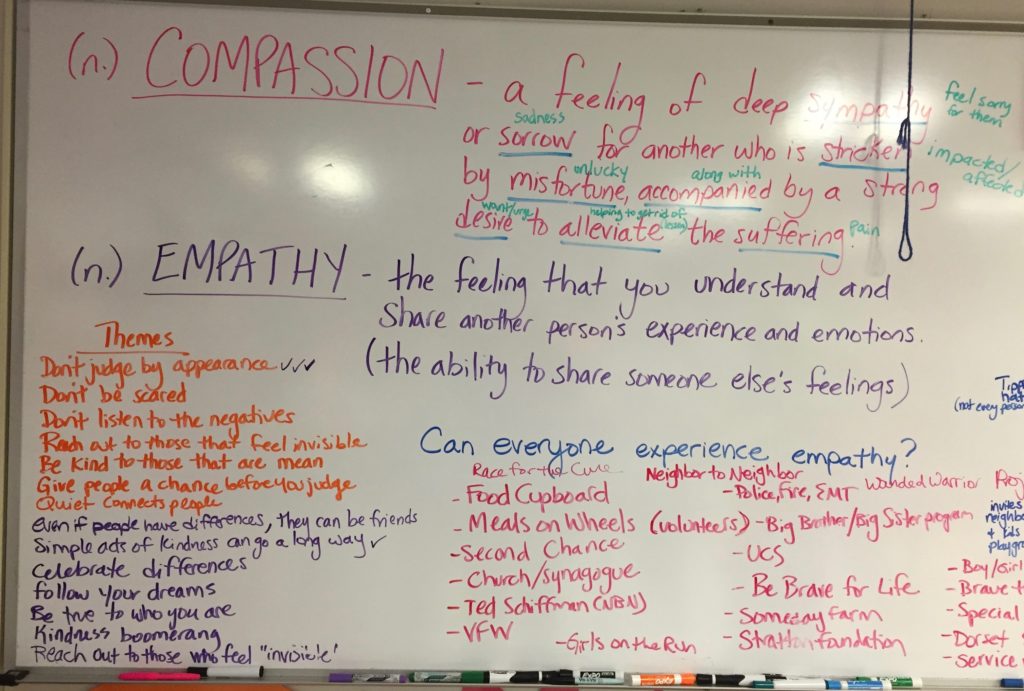 (n.) COMPASSION - a feeling of deep sympathy
feel sorry for them
sadness
or sorrow for another who is stricken
impacted/
affected
unlucky
along with
by misfortune, accompanied by a strong
want/urge
helping to get rid of
desire to alleviate the suffering.
pain
(n.) EMPATHY - the feeling that you understand and
share another person's experience and emotions.
(the ability to share someone else's feelings)
Themes
Don't judge by appearance ✓✓✓
Don't be scared
Don't listen to the negatives
Reach out to those that feel invisible
Be kind to those that are mean
Give people a chance before you judge
Quiet connects people
Even if people have differences, they can be friends
Simple acts of kindness can go a long way ✓
Celebrate differences
Follow your dreams
Be true to who you are
Kindness boomerang
Reach out to those who feel "invisible"
Can everyone experience empathy?
Race for the Cure
- Food Cupboard
- Meals on Wheels (volunteers)
- Second Chance
- Church/synagogue
- Ted Schiffman (NBN)
- VFW
- Girls on the Run
Neighbor to Neighbor
- Police, Fire, EMT
- Big Brother/Big Sister program
- UCS
- Be Brave for Life
- Someday farm
- Stratton foundation
Wounded Warrior Proj
(not every person
invites
neighbo
& kids
playgro
- Boy/Girl
- Brave t
- Special
- Dorset
- Service